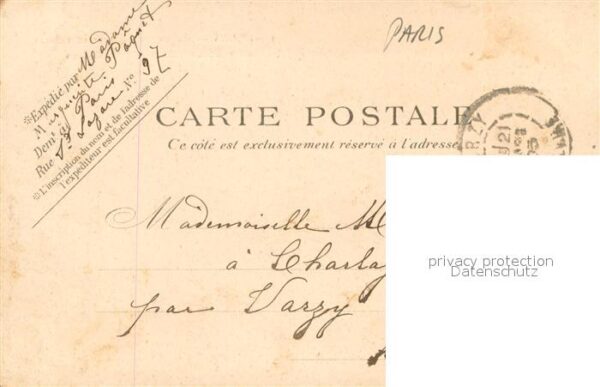 PARIS
Expédié par Madame
Marguerite Paquet
Demt à Paris
Rue St Lazare No 97
L'inscription du nom et de l'adresse de
l'expéditeur est facultative
CARTE POSTALE
Ce côté est exclusivement réservé à l'adresse
Mademoiselle M
à Charla
par Varzy
privacy protection
Datenschutz